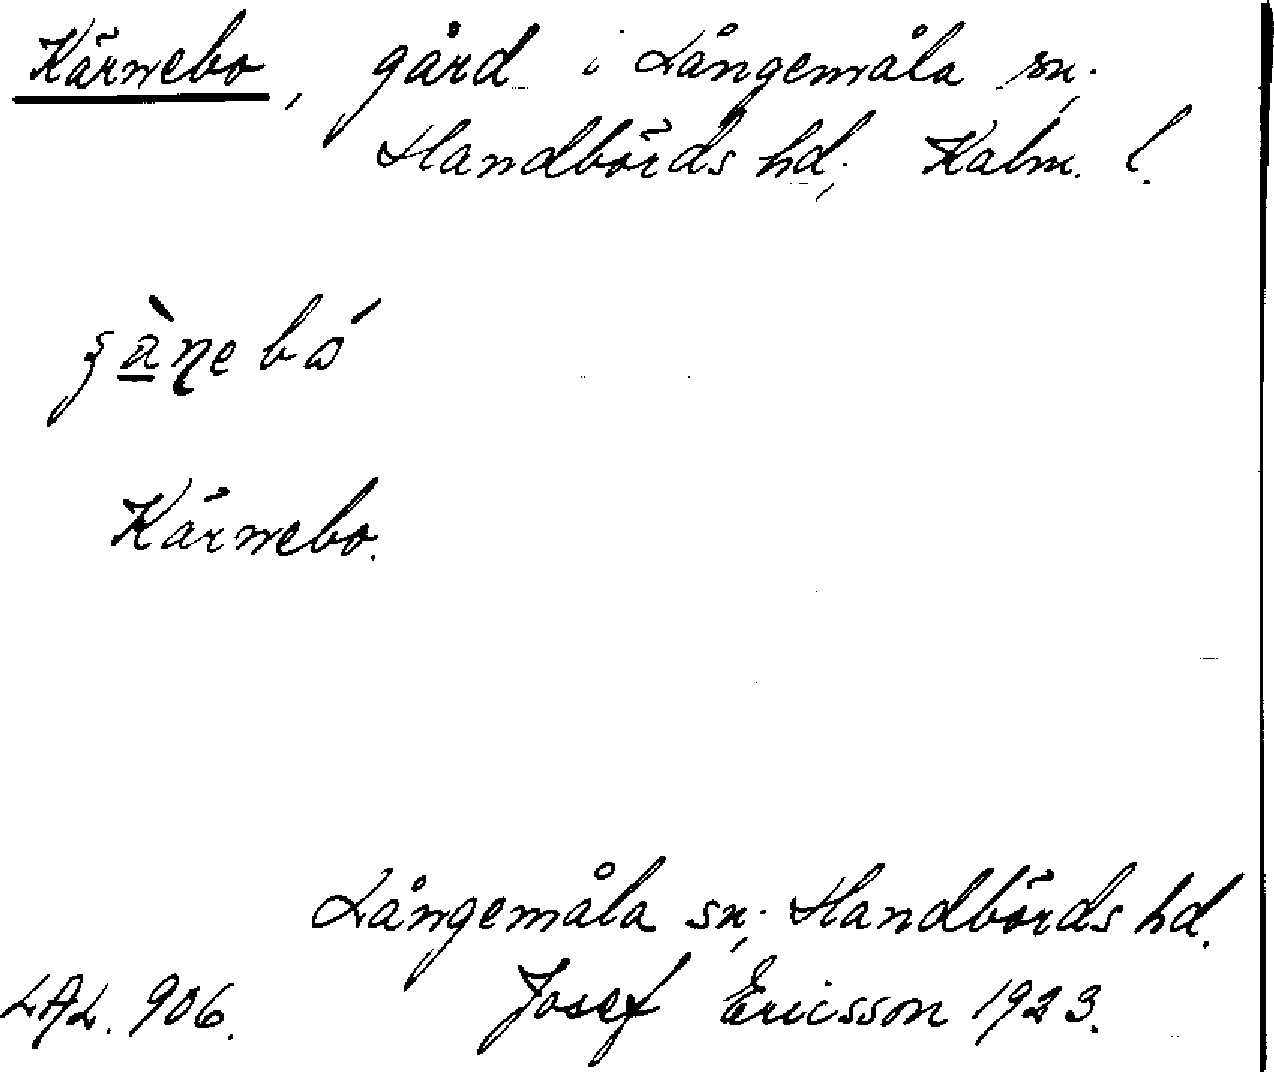 Kärnebo, gård i Långemåla sn.,
Handbörds hd., Kalm. l.
Kärnebo.
Långemåla sn., Handbörds hd.
LAL. 906. Josef Ericsson 1923.